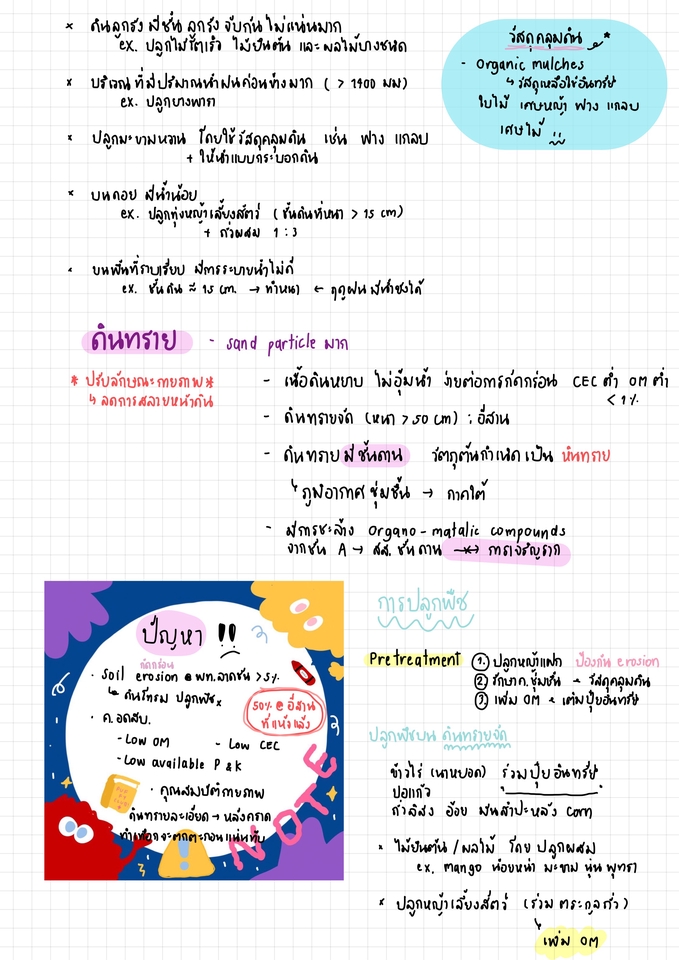 * ดินลูกรัง มีชั้นลูกรังจับกันไม่แน่นมาก
ex. ปลูกไม้โตเร็ว ไม้ยืนต้น และผลไม้บางชนิด
* บริเวณที่มีปริมาณน้ำฝนค่อนข้างมาก ( > 1400 มม)
ex. ปลูกยางพารา
* ปลูกมะขามหวาน โดยใช้วัสดุคลุมดิน เช่น ฟาง แกลบ
+ ให้น้ำแบบกระบอกดิน
* บนดอย มีน้ำน้อย
ex. ปลูกทุ่งหญ้าเลี้ยงสัตว์ (ชั้นดินที่หนา > 15 cm)
+ ถั่วผสม 1 : 3
* บนพื้นที่ราบเรียบ มีการระบายน้ำไม่ดี
ex. ชั้นดิน ≈ 15 cm. → ทำหนา ← ฤดูฝน มีน้ำขังได้
วัสดุคลุมดิน *
- Organic mulches
↳ วัสดุเหลือใช้อินทรีย์
ใบไม้ เศษหญ้า ฟาง แกลบ
เศษไม้
ดินทราย - sand particle มาก
* ปรับลักษณะกายภาพ *
↳ ลดการสลายหน้าดิน
- เนื้อดินหยาบ ไม่อุ้มน้ำ ง่ายต่อการกัดกร่อน CEC ต่ำ OM ต่ำ
< 1%
- ดินทรายจัด (หนา > 50 cm) ; อีสาน
- ดินทรายมีชั้นดาน วัตถุต้นกำเนิดเป็น หินทราย
↳ ภูมิอากาศชุ่มชื้น → ภาคใต้
- มีการชะล้าง Organo-matalic compounds
จากชั้น A → สส. ชั้นดาน การเจริญราก
ปัญหา !!
กัดกร่อน
· Soil erosion @ พท.ลาดชัน > 5%
↳ ดินโทรม ปลูกพืช x
50% @ อีสาน
ที่แห้งแล้ง
· ค.อุดสบ.
- Low OM - Low CEC
- Low available P & K
· คุณสมบัติกายภาพ
ดินทรายละเอียด → หลังคราด
ทำเทือกจะตกตะกอนแน่นทึบ
NOTE
การปลูกพืช
Pretreatment ① ปลูกหญ้าแฝก ป้องกัน erosion
② รักษาค.ชุ่มชื้น - วัสดุคลุมดิน
③ เพิ่ม OM - เติมปุ๋ยอินทรีย์
ปลูกพืชบน ดินทรายจัด
ข้าวไร่ (นาหยอด) ร่วมปุ๋ยอินทรีย์
ปอแก้ว
ถั่วลิสง อ้อย มันสำปะหลัง corn
* ไม้ยืนต้น / ผลไม้ โดย ปลูกผสม
ex. mango น้อยหน่า มะขาม นุ่น พุทรา
* ปลูกหญ้าเลี้ยงสัตว์ (ร่วม ตระกูลถั่ว)
↳ เพิ่ม OM